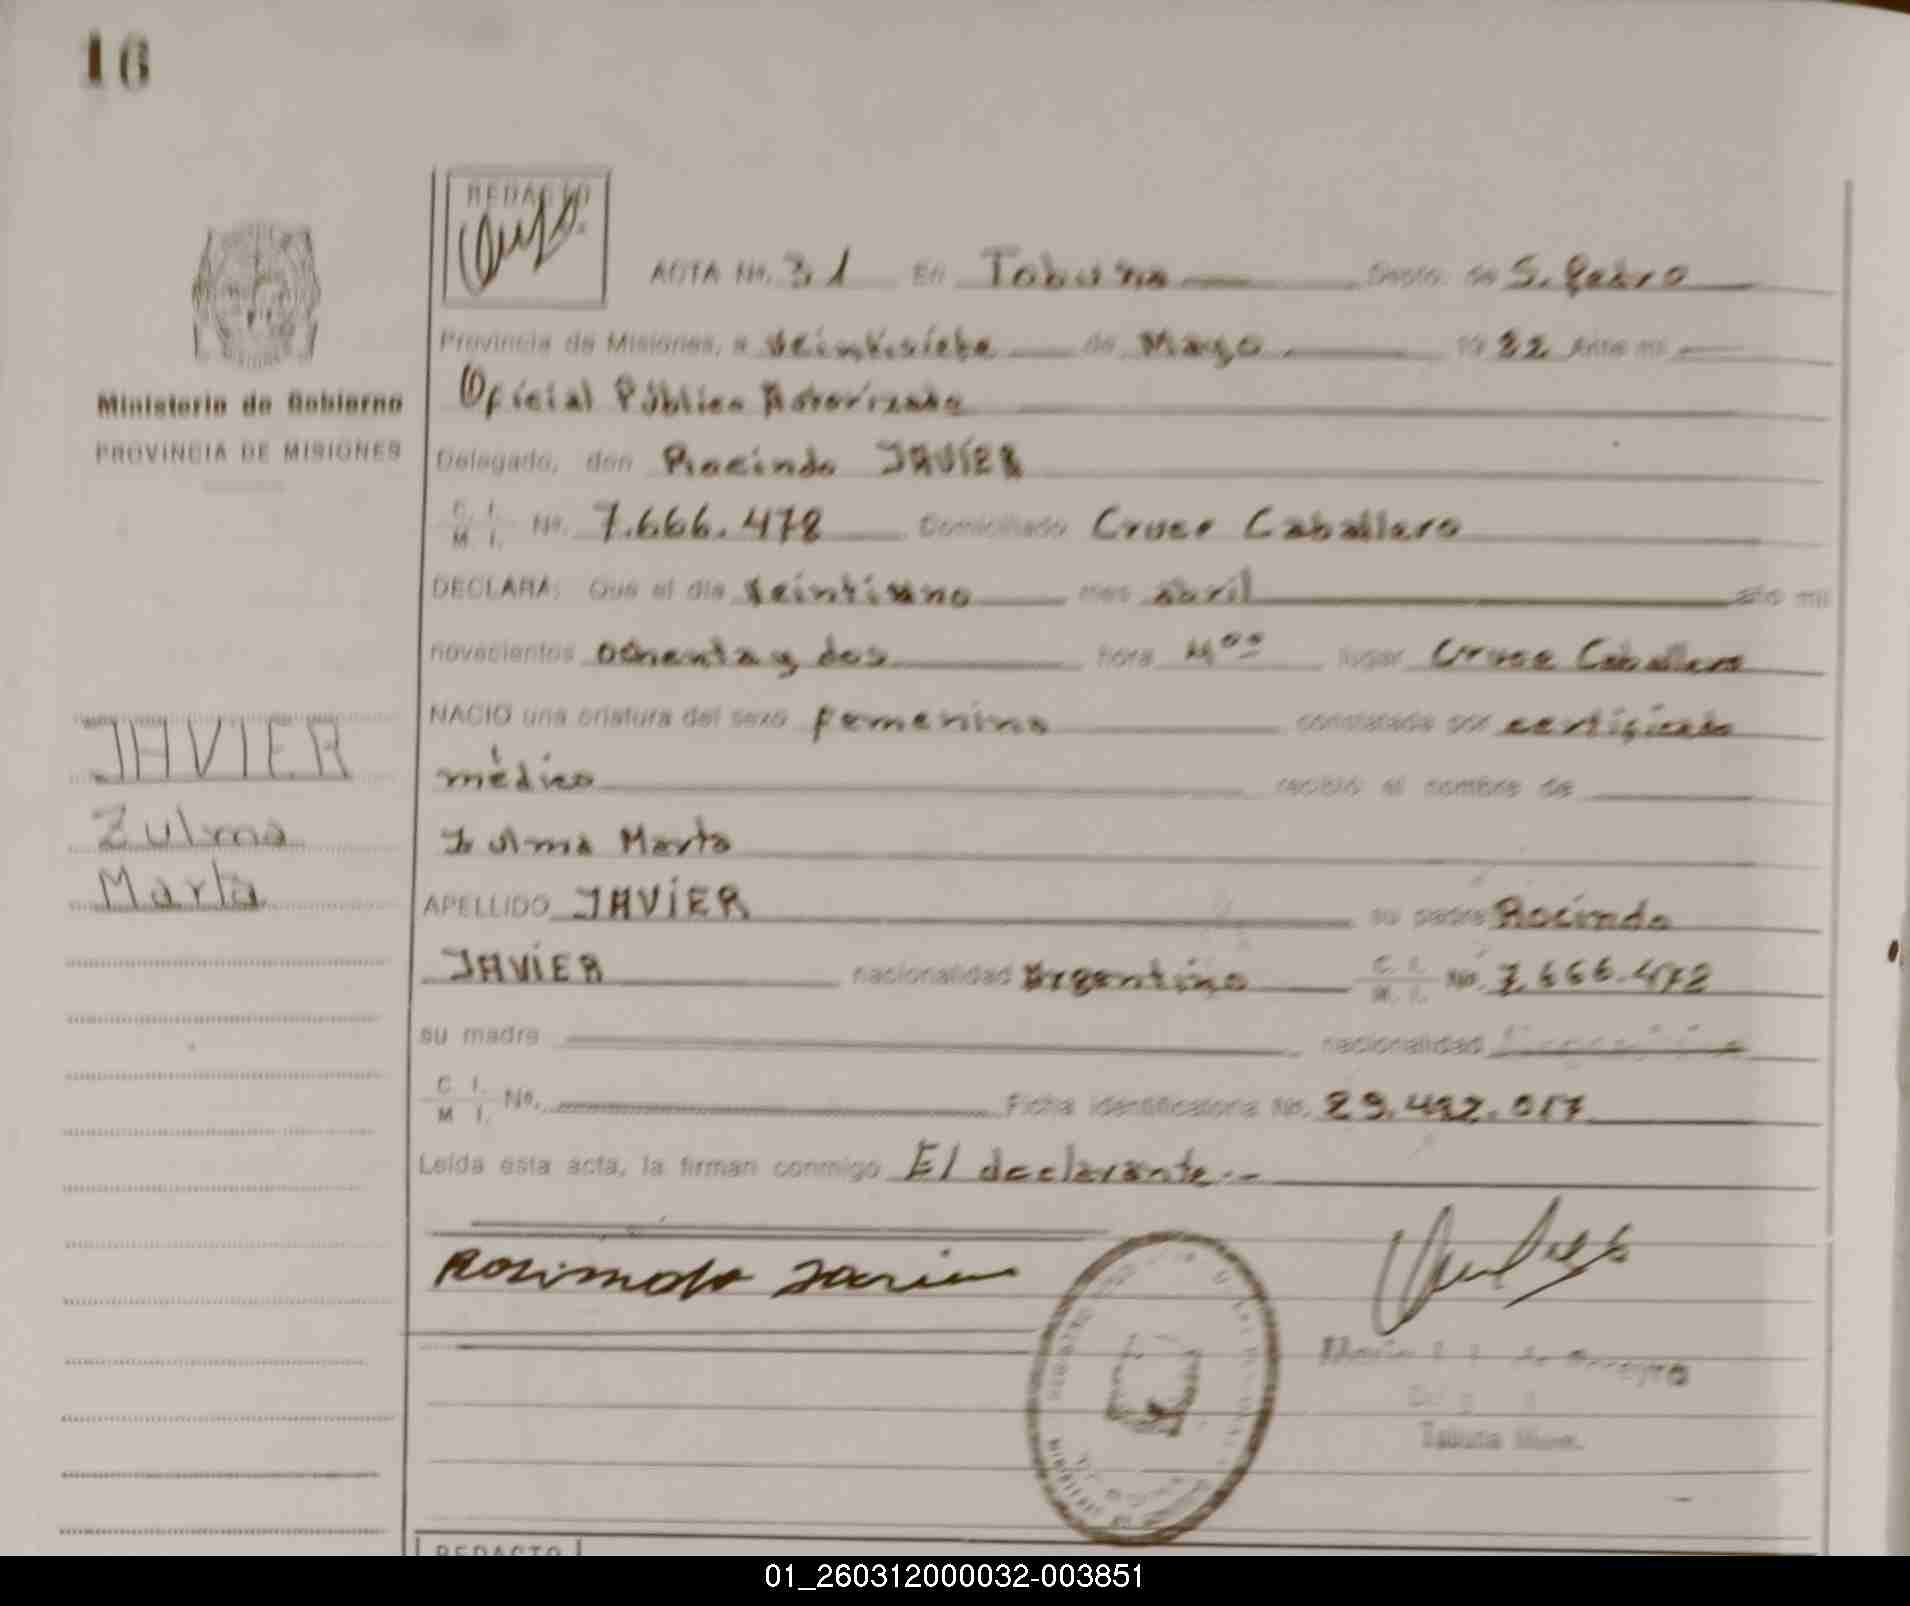 16
REDACTO
ACTA No. 31 En Tobuna Depto. de S. Pedro
Provincia de Misiones, a veintisiete de Mayo 1982 Ante mi
Ministerio de Gobierno
Oficial Público Autorizado
PROVINCIA DE MISIONES
Delegado, don Rocindo JAVIER
C. I.
M. I. No. 7.666.478 Domiciliado Cruce Caballero
DECLARA: Que el día veintiuno mes abril año mil
novecientos ochenta y dos hora 4⁰⁰ lugar Cruce Caballero
NACIO una criatura del sexo femenino constatada por certificado
médico recibió el nombre de
JAVIER
Zulma
Marta
Zulma Marta
APELLIDO JAVIER su padre Rocindo
JAVIER nacionalidad Argentino C. I. M. I. No. 7.666.478
su madre nacionalidad
C. I.
M. I. No. Ficha identificatoria No. 29.492.017
Leída esta acta, la firman conmigo El declarante.-
Rosimdo Javier
Tobuna Mnes.
REDACTO
01_260312000032-003851